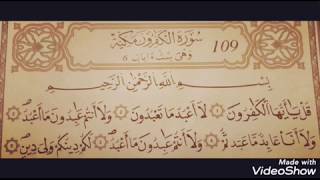 سُورَةُ الْكَافِرُونَ مَكِّيَّةٌ
109
وَهِيَ سِتُّ آيَاتٍ
بِسْمِ اللَّهِ الرَّحْمَٰنِ الرَّحِيمِ
قُلْ يَا أَيُّهَا الْكَافِرُونَ لَا أَعْبُدُ مَا تَعْبُدُونَ وَلَا أَنْتُمْ عَابِدُونَ مَا أَعْبُدُ
وَلَا أَنَا عَابِدٌ مَا عَبَدْتُمْ وَلَا أَنْتُمْ عَابِدُونَ مَا أَعْبُدُ لَكُمْ دِينُكُمْ وَلِيَ دِينِ
Made with
VideoShow